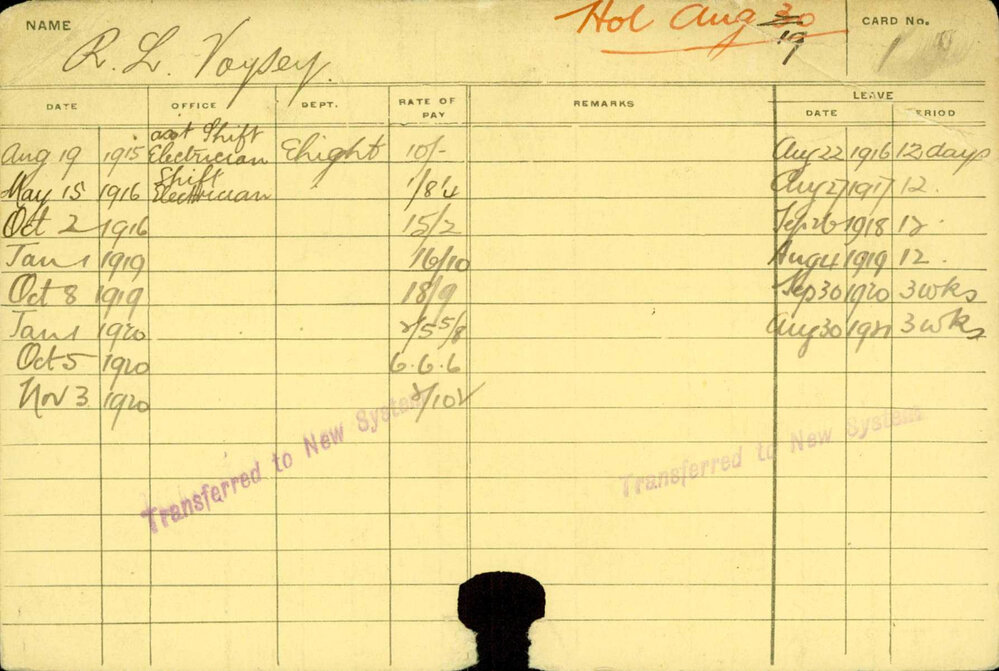 NAME R. L. Voysey Hol Aug 30 19 CARD No. 1
DATE OFFICE DEPT. RATE OF PAY REMARKS LEAVE DATE PERIOD
Aug 19 1915 asst Shift Electrician Elight 10/- Aug 22 1916 12 days
May 15 1916 Shift Electrician Aug 27 1917 12.
Oct 2 1916 15/2 Sep 26 1918 12
Jan 1 1919 16/10 Aug 4 1919 12.
Oct 8 1919 18/9 Sep 30 1920 3 wks
Jan 1 1920 Aug 30 1921 3 wks
Oct 5 1920 6.6.6
Nov 3 1920
Transferred to New System
Transferred to New System